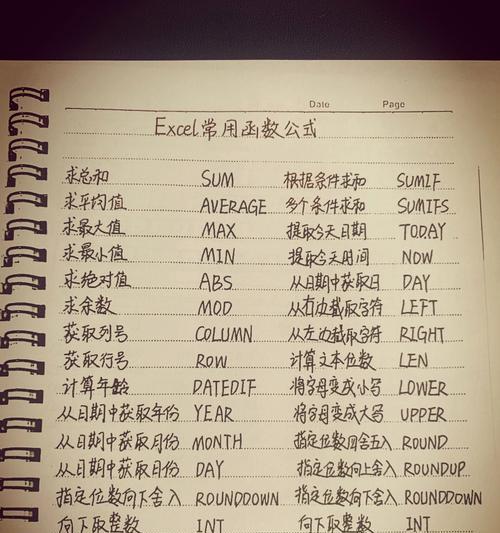 Date Page
Excel常用函数公式
求总和 SUM 根据条件求和 SUMIF
求平均值 AVERAGE 多个条件求和 SUMIFS
求最大值 MAX 提取今天日期 TODAY
求最小值 MIN 提取今天时间 NOW
求绝对值 ABS 从日期中获取日 DAY
求余数 MOD 从右边截取字符 LEFT
获取列号 COLUMN 从左边截取字符 RIGHT
获取行号 ROW 计算文本位数 LEN
计算年龄 DATEDIF 将字母变成小写 LOWER
从日期中获取年份 YEAR 将字母变成大写 UPPER
从日期中获取月份 MONTH 指定位数四舍五入 ROUND
从日期中获取日份 DAY 指定位数向上舍入 ROUNDUP
指定位数向下舍入 ROUNDDOWN 指定位数向下舍入 ROUNDDOWN
向下取整数 INT 向下取整数 INT